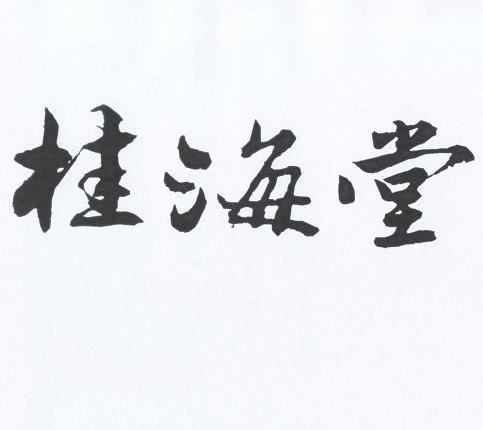 桂海堂